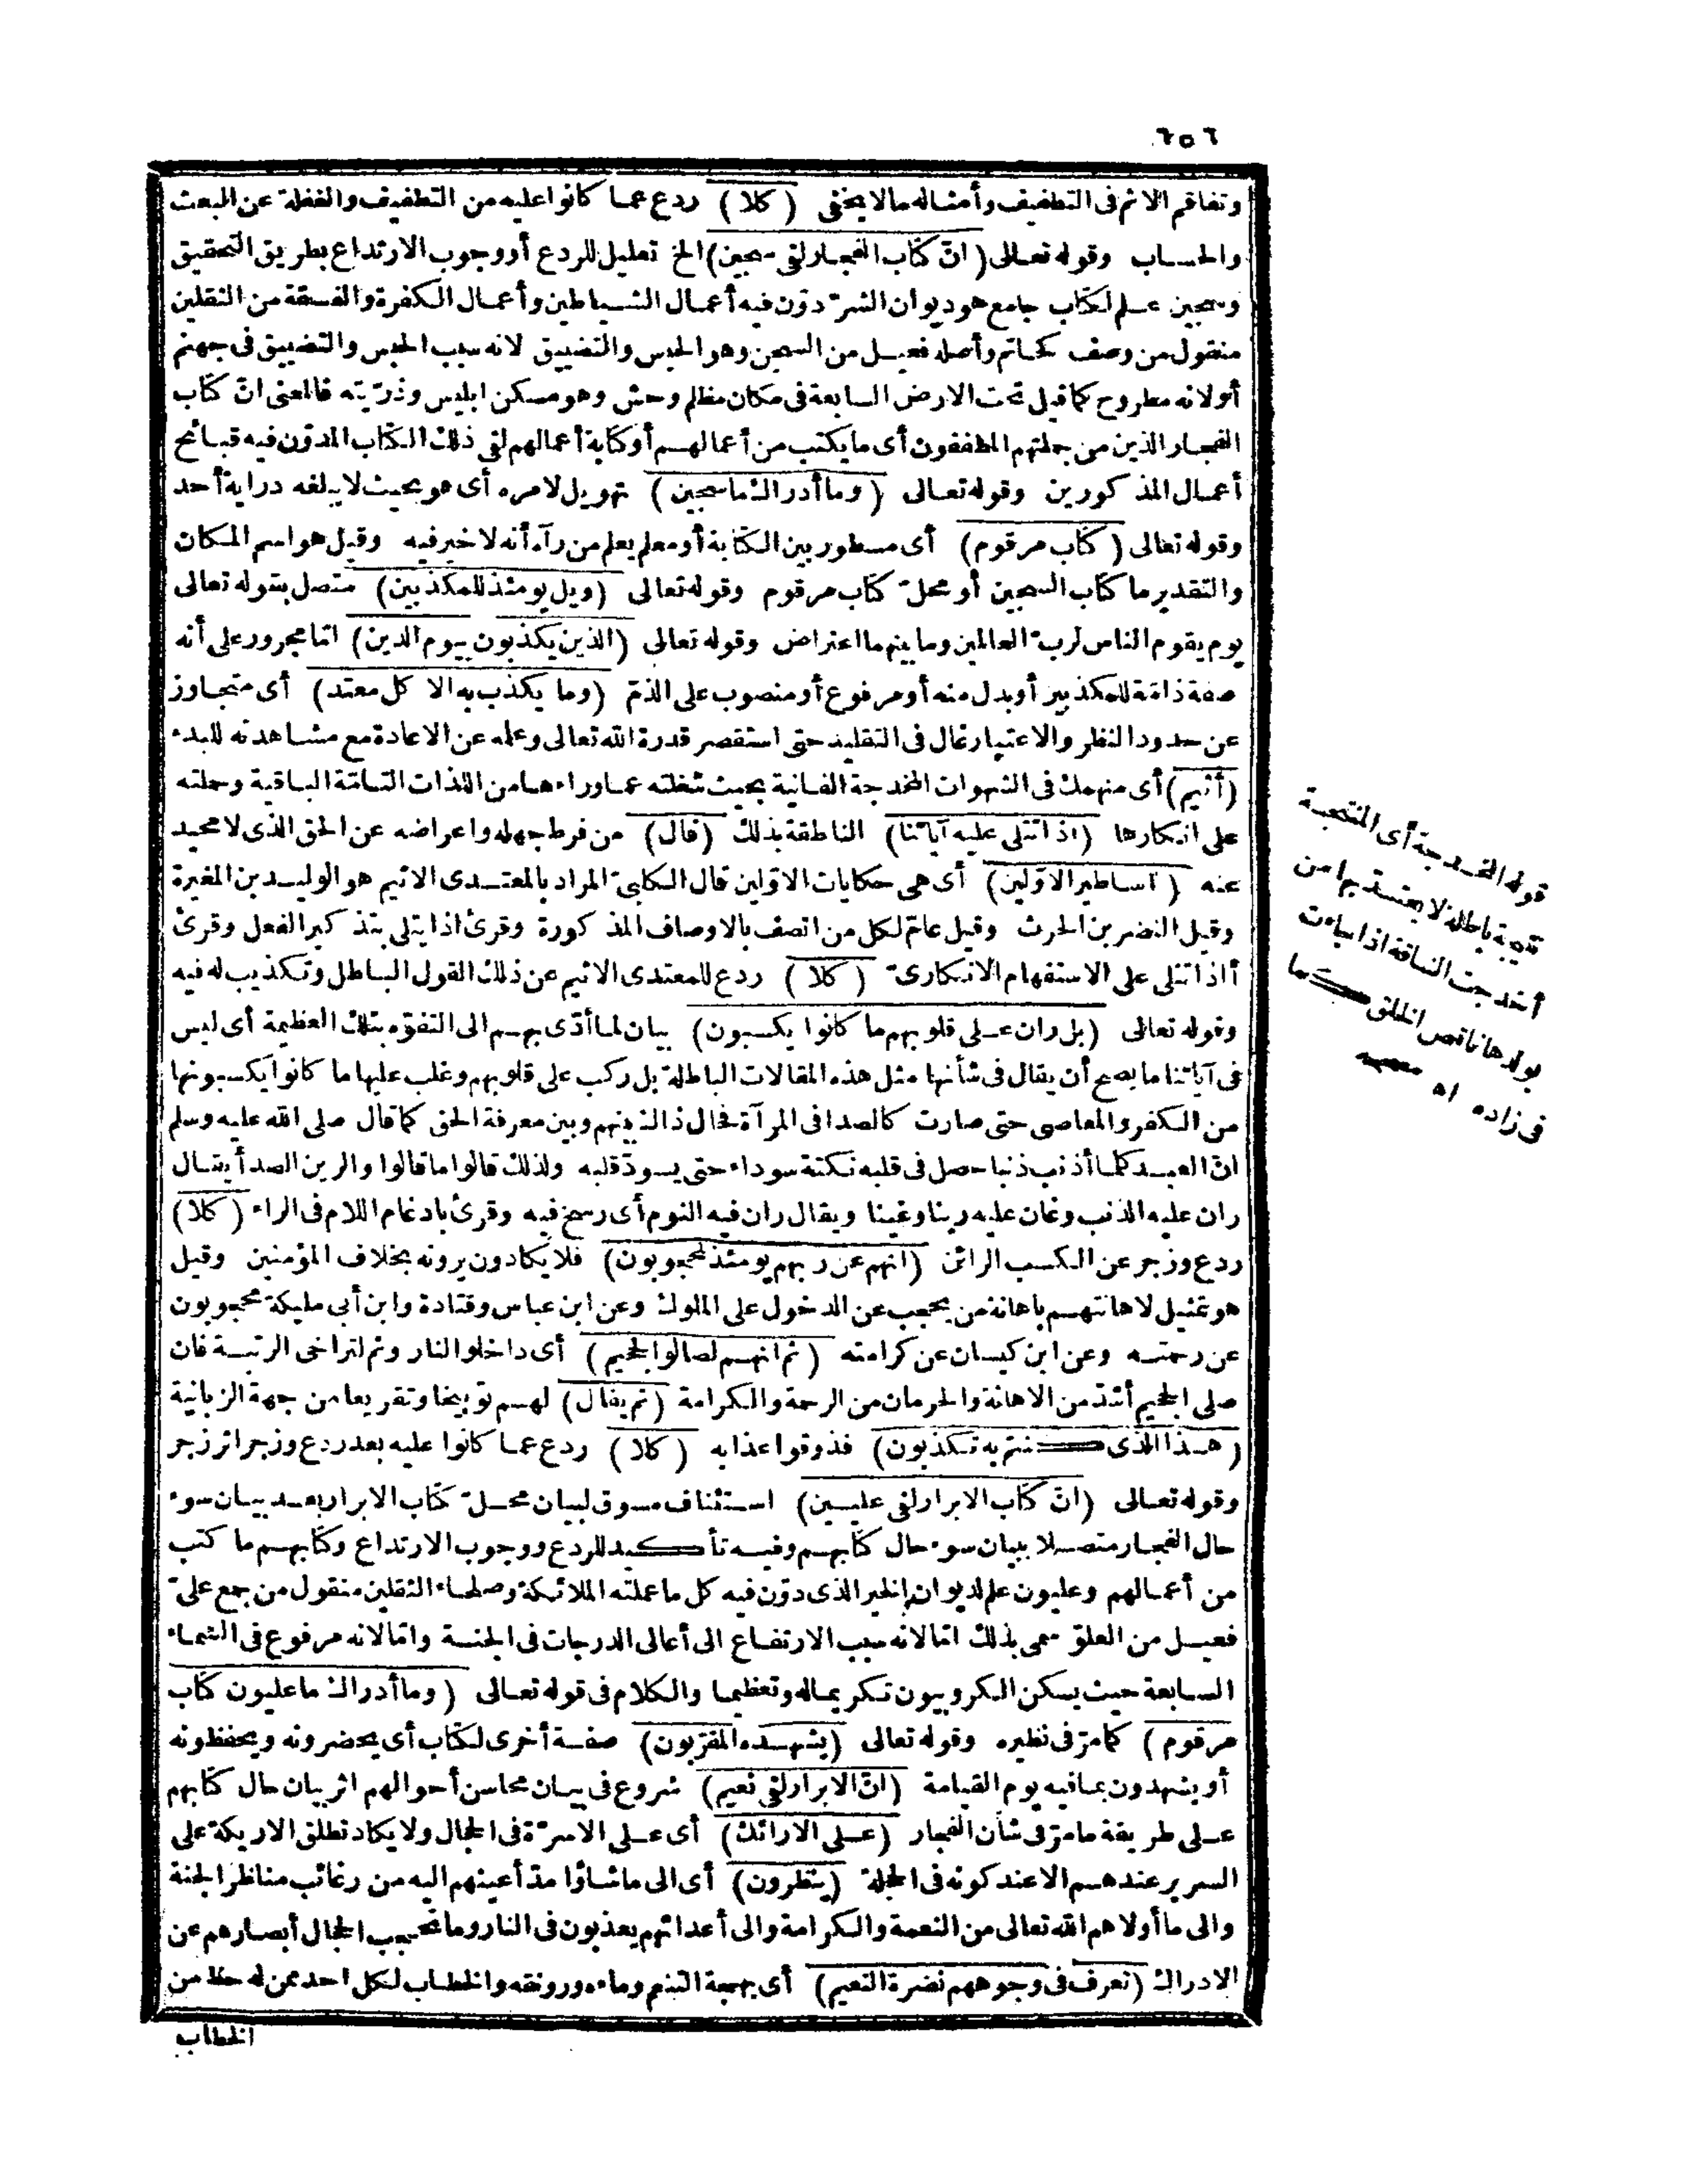 ٦٥٦
وتفاقم الاثم فى التطفيف وأمثاله مالا يخفى (كلا) ردع عما كانوا عليه من التطفيف والغفلة عن البعث
والحساب وقوله تعالى (انّ كتاب الفجار لفى سجين) الخ تعليل للردع أو وجوب الارتداع بطريق التحقيق
وسجين علم لكتاب جامع هو ديوان الشرّ دوّن فيه أعمال الشياطين وأعمال الكفرة والفسقة من الثقلين
منقول من وصف كحاتم وأصله فعيل من السجن وهو الحبس والتضييق لانه سبب الحبس والتضييق فى جهنم
أو لانه مطروح كما قيل تحت الارض السابعة فى مكان مظلم وحش وهو مسكن ابليس وذرّيته فالمعنى انّ كتاب
الفجار الذين من جملتهم المطففون أى ما يكتب من أعمالهم أو كتابة أعمالهم لفى ذلك الكتاب المدوّن فيه قبائح
أعمال المذكورين وقوله تعالى (وما أدراك ما سجين) تهويل لامره أى هو بحيث لا يبلغه دراية أحد
وقوله تعالى (كتاب مرقوم) أى مسطور بين الكتابة أو معلم يعلم من رآه أنه لا خير فيه وقيل هو اسم المكان
والتقدير ما كتاب السجين أو محلّ كتاب مرقوم وقوله تعالى (ويل يومئذ للمكذبين) متصل بقوله تعالى
يوم يقوم الناس لربّ العالمين وما بينهما اعتراض وقوله تعالى (الذين يكذبون بيوم الدين) امّا مجرور على أنه
صفة ذامّة للمكذبين أو بدل منه أو مرفوع أو منصوب على الذمّ (وما يكذب به الا كل معتد) أى متجاوز
عن حدود النظر والاعتبار غال فى التقليد حتى استقصر قدرة الله تعالى وعلمه عن الاعادة مع مشاهدته للبدء
(أثيم) أى منهمك فى الشهوات المخدجة الفانية بحيث شغلته عما وراءها من اللذات التامّة الباقية وحملته
على انكارها (اذا تتلى عليه آياتنا) الناطقة بذلك (قال) من فرط جهله واعراضه عن الحق الذى لا محيد
عنه (أساطير الاوّلين) أى هى حكايات الاوّلين قال الكلبىّ المراد بالمعتدى الاثيم هو الوليد بن المغيرة
وقيل النضر بن الحرث وقيل عامّ لكل من اتصف بالاوصاف المذكورة وقرئ اذا يتلى بتذكير الفعل وقرئ
أاذا تتلى على الاستفهام الانكارىّ (كلا) ردع للمعتدى الاثيم عن ذلك القول الباطل وتكذيب له فيه
وقوله تعالى (بل ران على قلوبهم ما كانوا يكسبون) بيان لما أدّى بهم الى التفوّه بتلك العظيمة أى ليس
فى آياتنا ما يصح أن يقال فى شأنها مثل هذه المقالات الباطلة بل ركب على قلوبهم وغلب عليها ما كانوا يكسبونها
من الكفر والمعاصى حتى صارت كالصدا فى المرآة فحال ذلك بينهم وبين معرفة الحق كما قال صلى الله عليه وسلم
انّ العبد كلما أذنب ذنبا حصل فى قلبه نكتة سوداء حتى يسودّ قلبه ولذلك قالوا ما قالوا والرين الصدأ يقال
ران عليه الذنب وغان عليه رينا وغينا ويقال ران فيه النوم أى رسخ فيه وقرئ بادغام اللام فى الراء (كلا)
ردع وزجر عن الكسب الرائن (انهم عن ربهم يومئذ لمحجوبون) فلا يكادون يرونه بخلاف المؤمنين وقيل
هو تمثيل لاهانتهم باهانة من يحجب عن الدخول على الملوك وعن ابن عباس وقتادة وابن أبى مليكة محجوبون
عن رحمته وعن ابن كيسان عن كرامته (ثم انهم لصالوا الجحيم) أى داخلو النار وثم لتراخى الرتبة فان
صلى الجحيم أشدّ من الاهانة والحرمان من الرحمة والكرامة (ثم يقال) لهم توبيخا وتقريعا من جهة الزبانية
(هذا الذى كنتم به تكذبون) فذوقوا عذابه (كلا) ردع عما كانوا عليه بعد ردع وزجر اثر زجر
وقوله تعالى (انّ كتاب الابرار لفى عليين) استئناف مسوق لبيان محلّ كتاب الابرار بعد بيان سوء
حال الفجار متصلا ببيان سوء حال كتابهم وفيه تأكيد للردع ووجوب الارتداع وكتابهم ما كتب
من أعمالهم وعليون علم لديوان الخير الذى دوّن فيه كل ما عملته الملائكة وصلحاء الثقلين منقول من جمع علىّ
فعيل من العلوّ سمى بذلك امّا لانه سبب الارتفاع الى أعالى الدرجات فى الجنة وامّا لانه مرفوع فى السماء
السابعة حيث يسكن الكروبيون تكريما له وتعظيما والكلام فى قوله تعالى (وما أدراك ما عليون كتاب
مرقوم) كما مرّ فى نظيره وقوله تعالى (يشهده المقرّبون) صفة أخرى لكتاب أى يحضرونه ويحفظونه
أو يشهدون بما فيه يوم القيامة (انّ الابرار لفى نعيم) شروع فى بيان محاسن أحوالهم اثر بيان حال كتابهم
على طريقة ما مرّ فى شأن الفجار (على الارائك) أى على الاسرّة فى الحجال ولا يكاد تطلق الاريكة على
السرير عندهم الا عند كونه فى الحجلة (ينظرون) أى الى ما شاؤا مدّ أعينهم اليه من رغائب مناظر الجنة
والى ما أولاهم الله تعالى من النعمة والكرامة والى أعدائهم يعذبون فى النار وما تحجب الحجال أبصارهم عن
الادراك (تعرف فى وجوههم نضرة النعيم) أى بهجة التنعم وماءه ورونقه والخطاب لكل احد ممن له حظ من
الخطاب
قوله المخدجة أى المنتجبة
نتيجة باطلة لا يعتد بها من
أخدجت الناقة اذا جاءت
بولدها ناقص الخلق كما
فى زاده اه مصححه